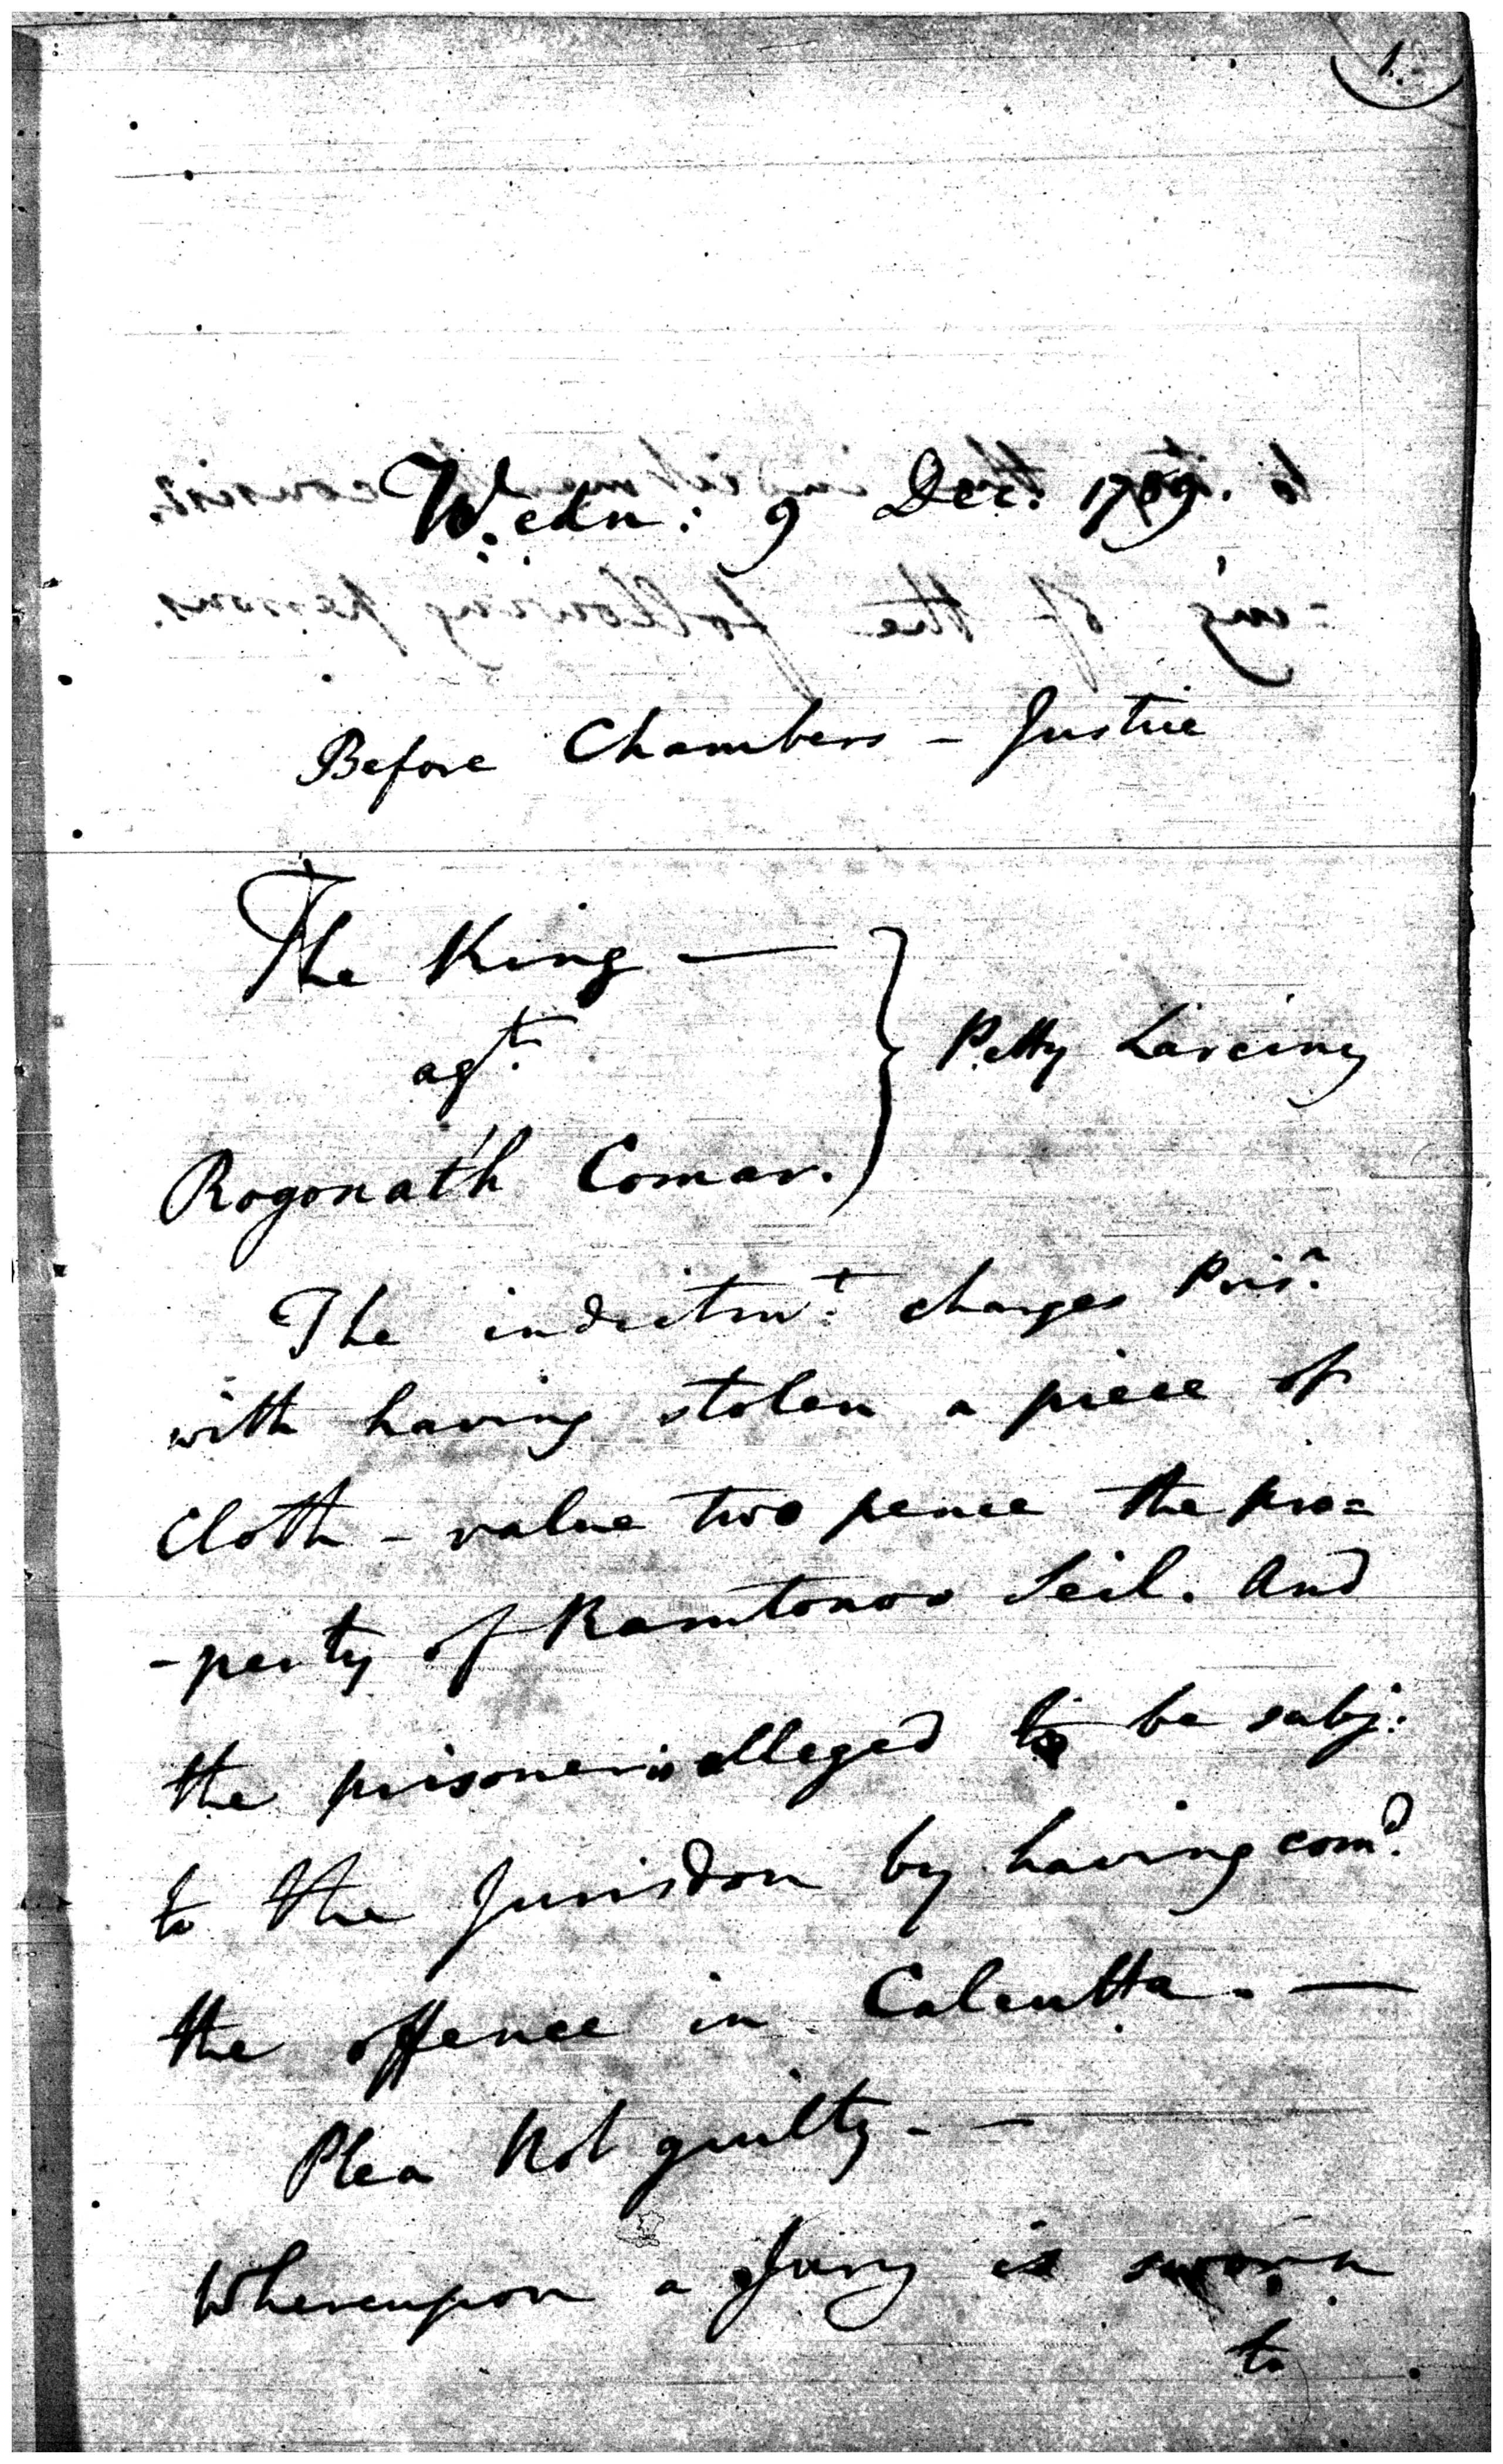 1.
Wedn: 9 Decr. 1789.
Before Chambers - Justice
The King —
agt.
Petty Larciny
Rogonath Comar.
The indictmt. charges Prisr.
with having stolen a piece of
Cloth - value two pence the pro=
-perty of Ramtonoo Seil. And
the prisoner is alleged to be subj:
to the Jurisdon by having comd.
the offence in Calcutta. —
Plea Not guilty. —
Whereupon a Jury is sworn
to